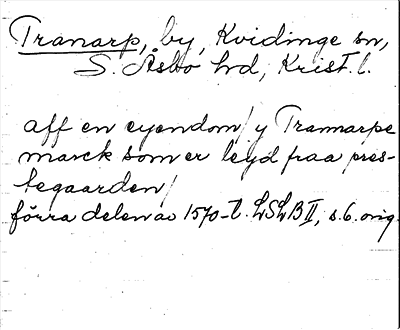 Tranarp, by, Kvidinge sn,
S. Åsbo hd, Krist. l.
aff en eyendom/y Trannarpe
marck som er leyd fraa pres-
tegaarden/
förra delen av 1570-t. LSLB II, s. 6. orig.